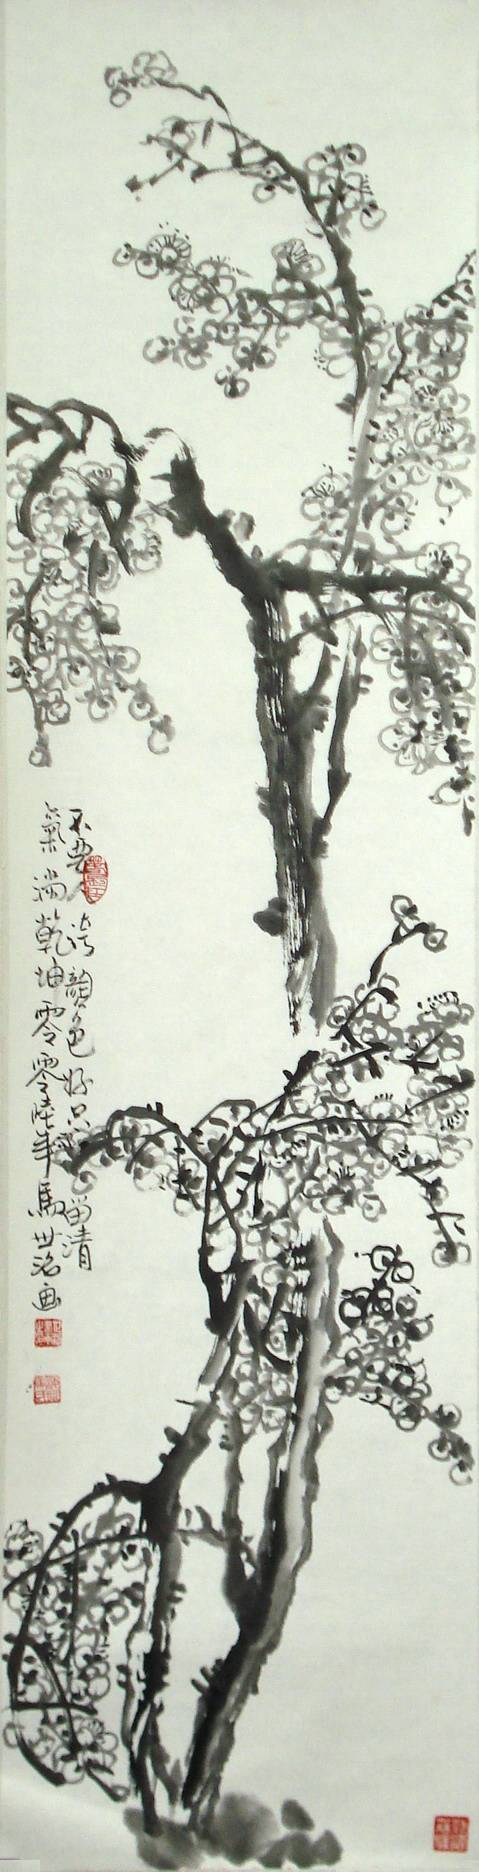 不要人誇顏色好只留清
氣滿乾坤零零陸年馬世名画